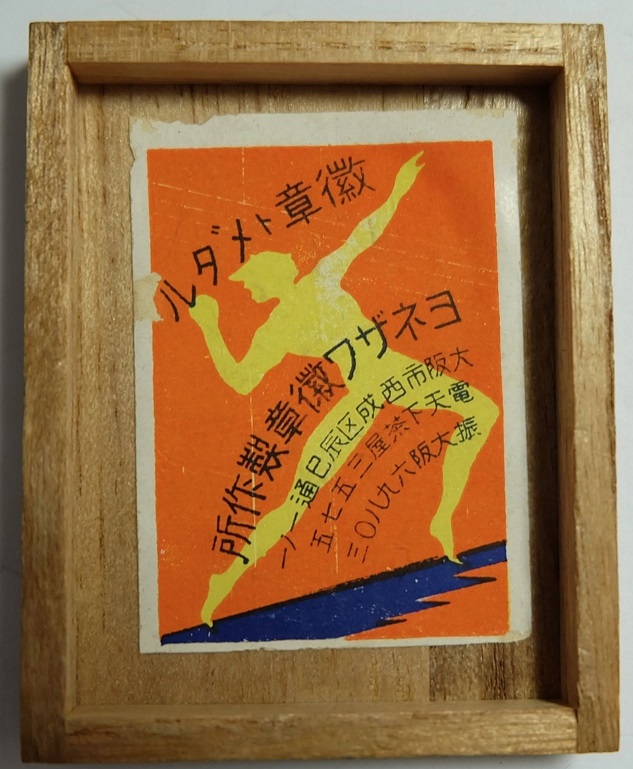 徽章トメダル
ヨネザワ徽章製作所
大阪市西成区辰巳通一八
電天下茶屋三五七五
振大阪六九八〇三